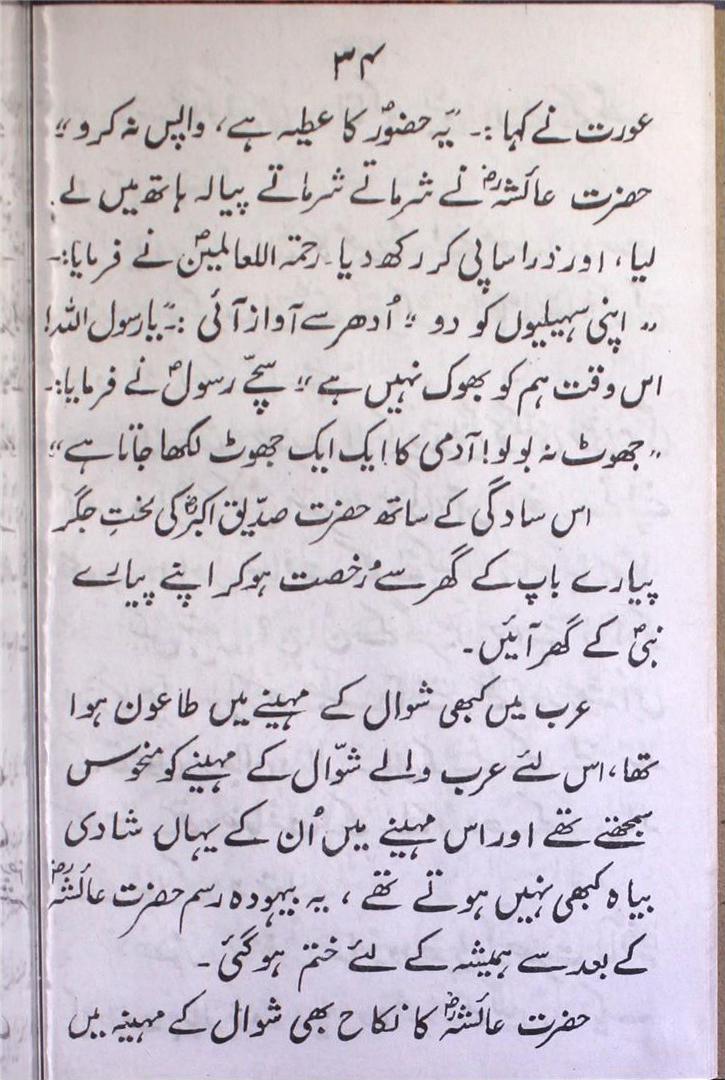 ۳۴
عورت نے کہا :۔ "یہ حضورؐ کا عطیہ ہے، واپس نہ کرو"
حضرت عائشہؓ نے شرماتے شرماتے پیالہ ہاتھ میں لے
لیا، اور ذرا سا پی کر رکھ دیا۔ رحمۃ اللعالمینؐ نے فرمایا:۔
"اپنی سہیلیوں کو دو" اُدھر سے آواز آئی :۔ "یا رسول اللہ!
اس وقت ہم کو بھوک نہیں ہے" سچّے رسولؐ نے فرمایا:۔
"جھوٹ نہ بولو! آدمی کا ایک ایک جھوٹ لکھا جاتا ہے"
اس سادگی کے ساتھ حضرت صدّیق اکبرؓ کی لختِ جگر
پیارے باپ کے گھر سے رُخصت ہو کر اپنے پیارے
نبیؐ کے گھر آئیں۔
عرب میں کبھی شوال کے مہینے میں طاعون ہوا
تھا، اس لئے عرب والے شوّال کے مہینے کو منحوس
سمجھتے تھے اور اس مہینے میں اُن کے یہاں شادی
بیاہ کبھی نہیں ہوتے تھے، یہ بیہودہ رسم حضرت عائشہؓ
کے بعد سے ہمیشہ کے لئے ختم ہو گئی۔
حضرت عائشہؓ کا نکاح بھی شوال کے مہینہ میں